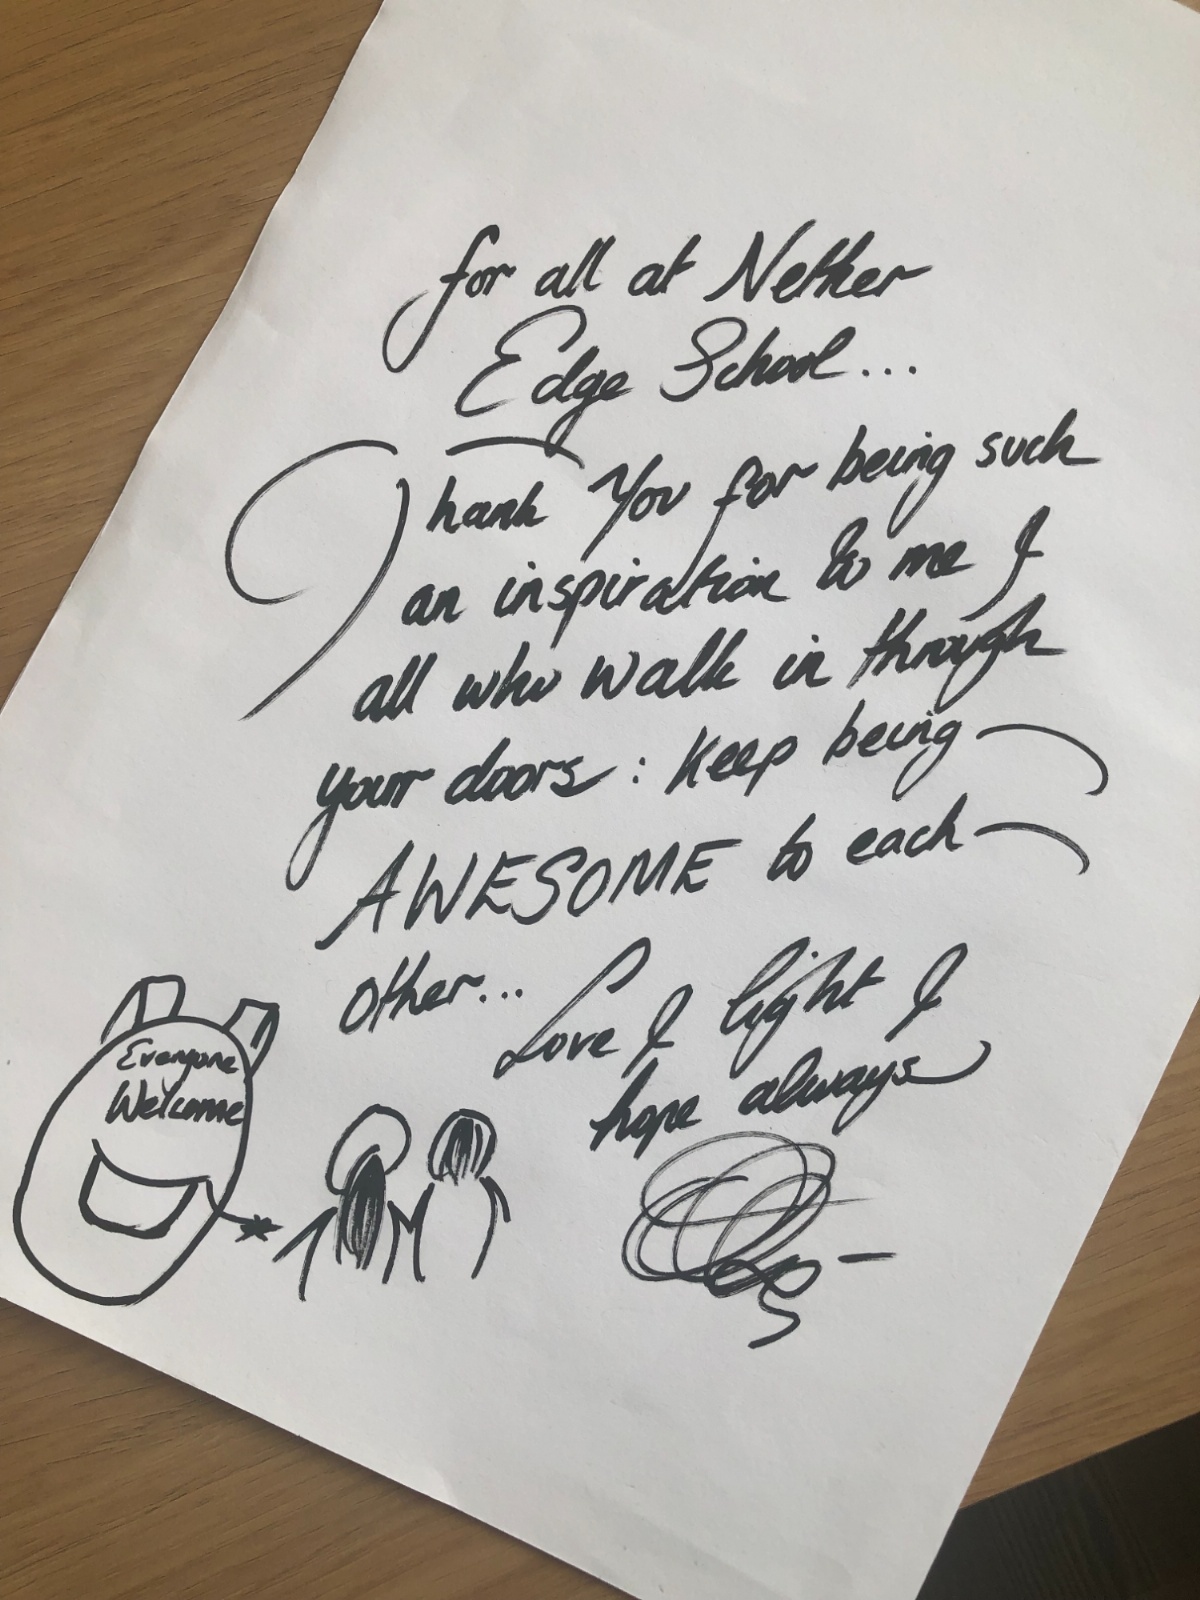 for all at Nether
Edge School...
Thank You for being such
an inspiration to me &
all who walk in through
your doors: Keep being
AWESOME to each
other...
Love & light &
hope always
Everyone
Welcome